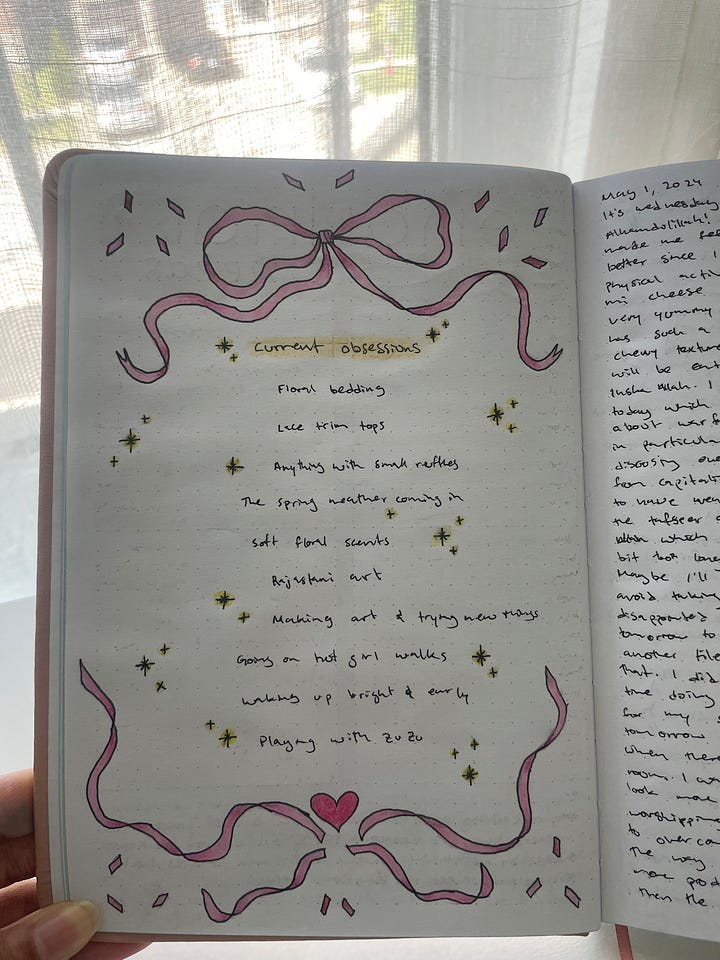 Current obsessions
Floral bedding
Lace trim tops
Anything with small ruffles
The spring weather coming in
Soft floral scents
Rajastani art
Making art & trying new things
Going on hot girl walks
waking up bright & early
Playing with ZuZu
May 1, 2024
It's wednesday
Alhamdolillah!
made me
better since I
physical
mi cheese
very yummy
has such a
chewy texture
will be
Insha Allah. I
today which
about
in particular
from
to have
the tafseer
which
bit
Maybe I'll
avoid taking
disappointed
tomorrow to
another
that. I did
time doing
for my
tomorrow
when there
room. I
look more
worshipping
to
The way
more
than the